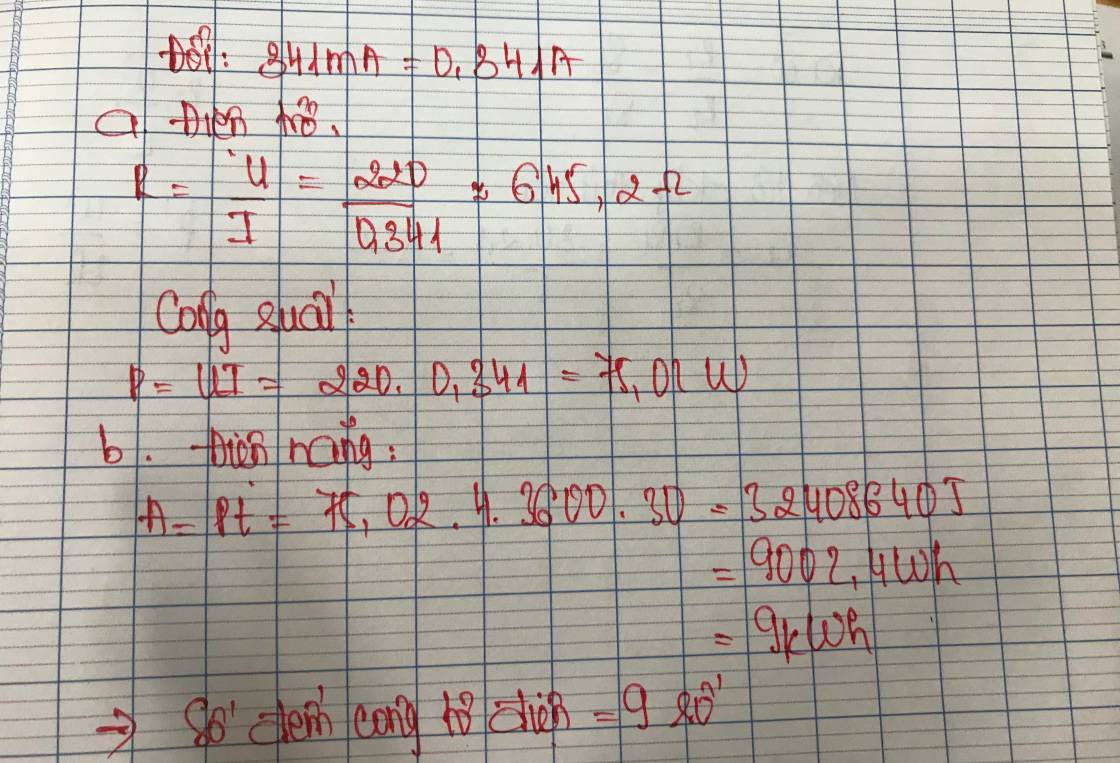 Đổi: 341mA = 0,341A
a. Điện trở.
R = U/I = 220/0,341 ≈ 645,2 Ω
Công suất:
P = UI = 220. 0,341 = 75,02 W
b. Điện năng:
A = Pt = 75,02 . 4. 3600. 30 = 32408640J
= 9002,4Wh
= 9kWh
→ Số đếm công tơ điện = 9 số